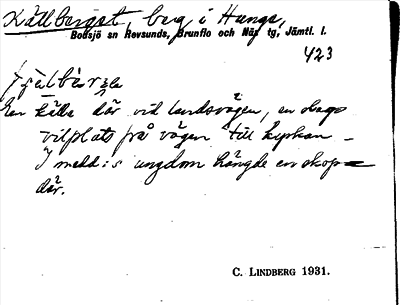 Källberget, berg i Hunge,
Bodsjö sn Revsunds, Brunflo och Näs tg, Jämtl. l.
423
En källa där vid landsvägen, en dags
vilplats på vägen till kyrkan –
I medd:s ungdom hängde en skopa
där.
C. LINDBERG 1931.